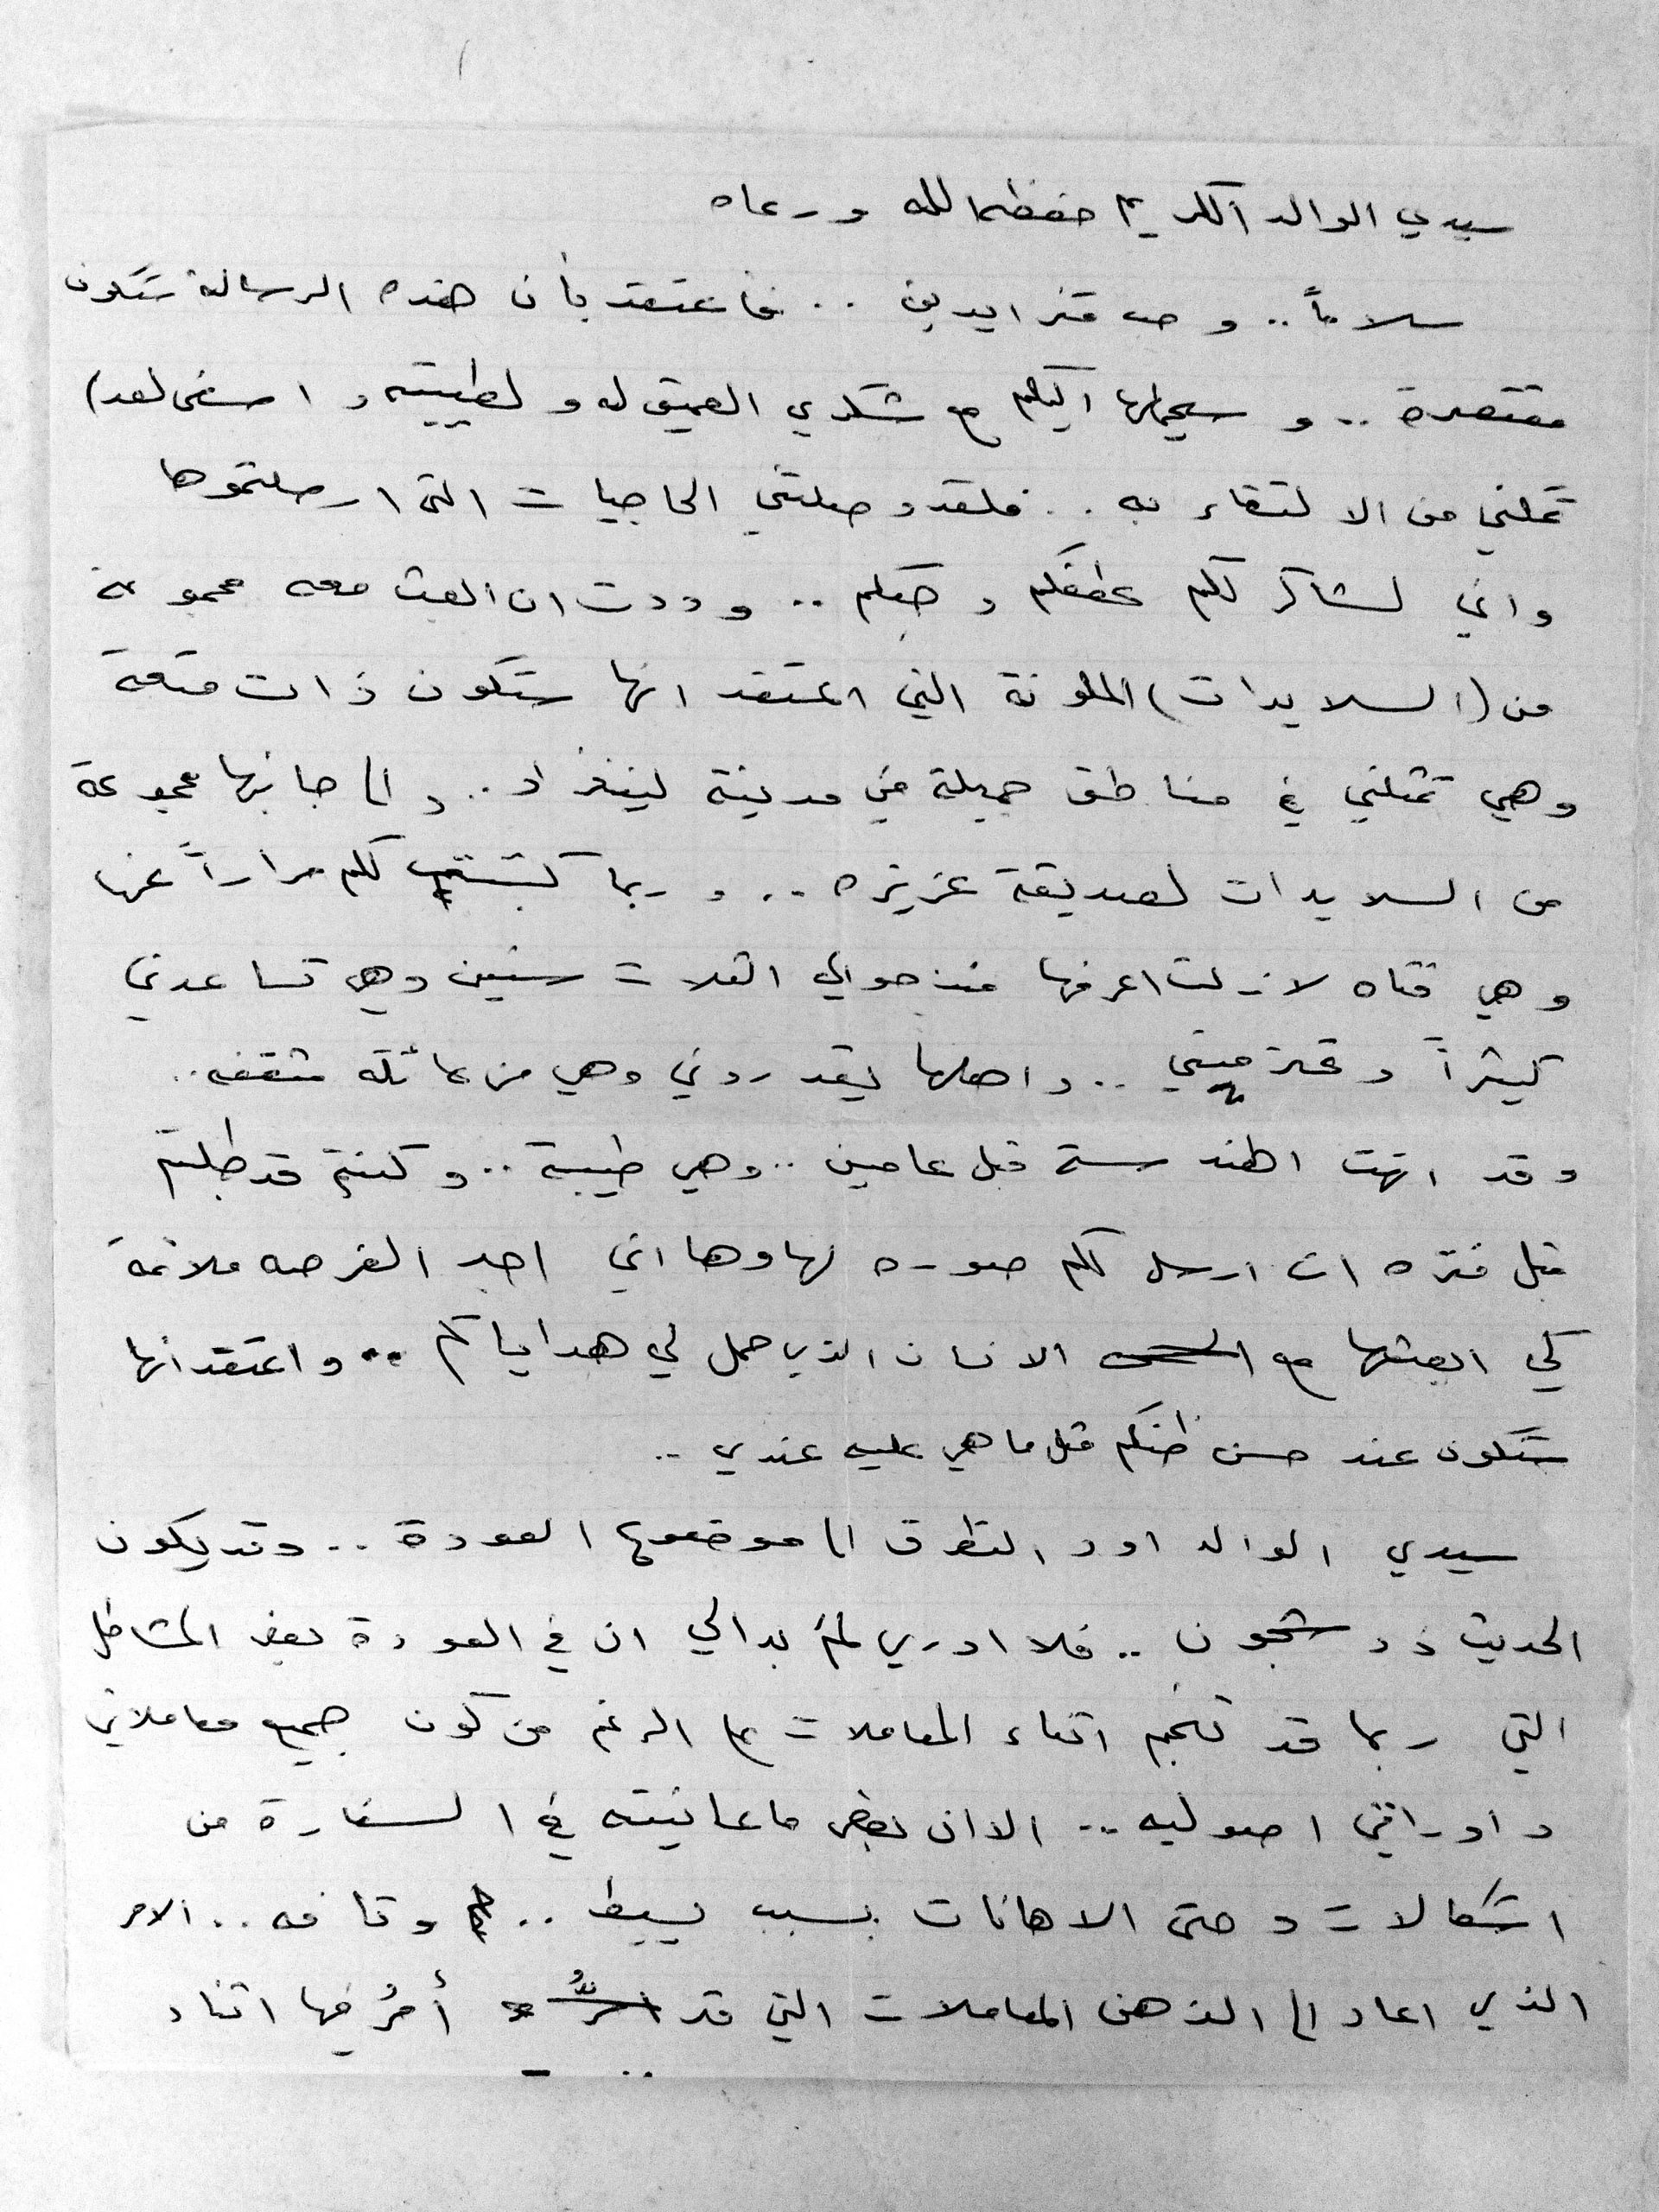 سيدي الوالد الكريم حفظه الله ورعاه
سلاماً.. و ايديكم .. فاعتقد بأن هذه الرسالة ستكون
مقتصرة .. و سيحملها اليكم مع شكري العميق له و لطيبته و اسفي لعدم
تمكني من الالتقاء به .. فلقد وصلتني الحاجيات التي ارسلتموها
واني لشاكر لكم عطفكم و حبكم .. وددت ان ابعث معه مجموعة
من (السلايدات) الملونة التي اعتقد انها ستكون ذات متعة
وهي تمثلني في مناطق جميلة في مدينة لينغراد .. و الى جانبها مجموعة
من السلايدات لصديقة عزيزه .. و ربما كتبت لكم مراراً عنها
وهي فتاه لازلت اعرفها منذ حوالي الثلاث سنين وهي تساعدني
كثيراً و تحترمني .. و اهلها يقدروني وهي من عائلة مثقفه ..
و قد انهت الهندسة قبل عامين .. وهي طيبة .. و كنتم قد طلبتم
قبل فتره ان ارسل لكم صوره لها وها اني اجد الفرصه ملائمة
كي ابعثها مع الانسان الذي حمل لي هداياكم .. و اعتقد انها
ستكون عند حسن ظنكم مثل ما هي عليه عندي ..
سيدي الوالد اود التطرق الى موضوع العودة .. وقد يكون
الحديث ذو شجون .. فلا ادري لم بدا لي ان في العودة بعض المشاكل
التي ربما قد تنجم اثناء المعاملات على الرغم من كون جميع معاملاتي
و اوراقي اصوليه .. الا ان بعض ما عانيته في السفارة من
اشكالات و حتى الاهانات بسبب بسيط .. وتافه .. الامر
الذي اعاد الى الذهن المعاملات التي قد أمرُ فيها اثناء